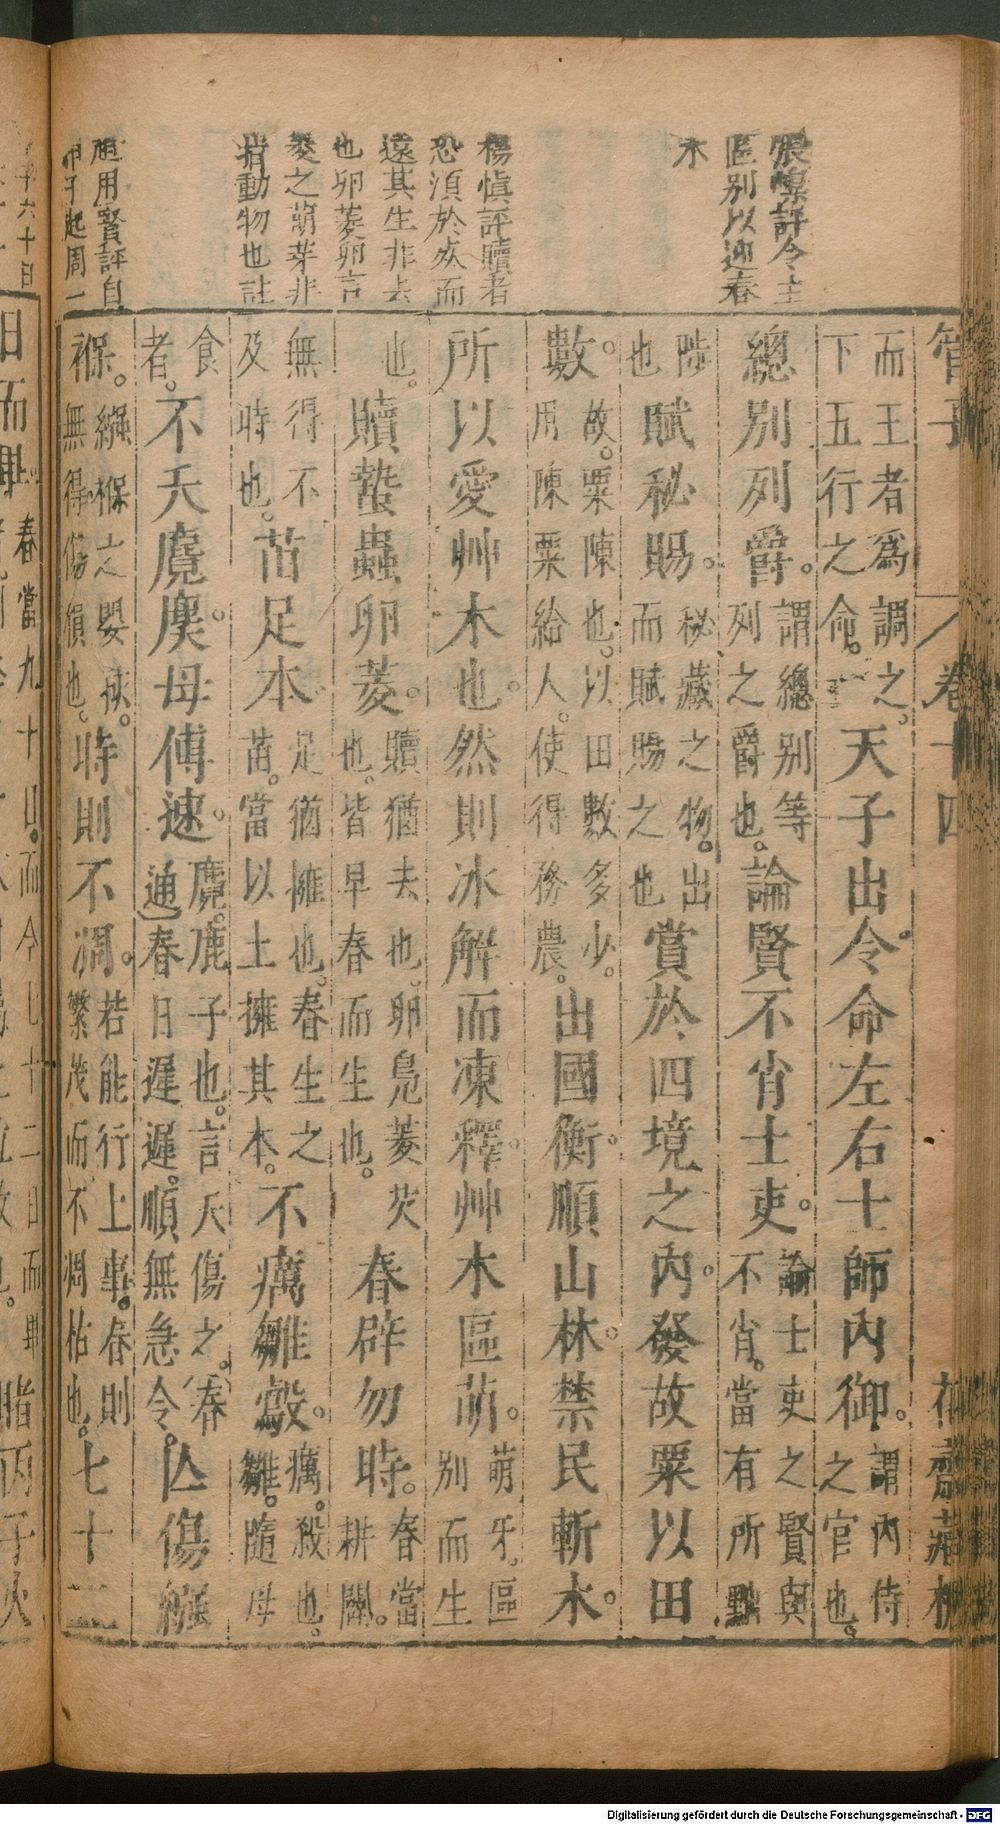 管子
卷十四
花齋藏板
張榜評令主
區别以迎春
木
楊慎評贖者
恐湏於灰而
遠其生非去
也卵菱卵言
菱之萌芽非
指動物也註
用賢評自
甲子起周一
而王者爲調之。
下五行之命。
天子出令。命左右士師內御。
謂內侍
之官也。
總别列爵。
謂總别等
列之爵也。
論賢不肖士吏。
論士吏之賢與
不肖。當有所黜
陟
也
賦秘賜。
秘藏之物。出
而賦賜之也
賞於四境之內。發故粟以田
數。
故。粟陳也。以田數多少。
用陳粟給人。使得務農。
出國衡。順山林。禁民斬木。
所以愛艸木也。然則冰解而凍釋。艸木區萌。
萌牙。區
别而生
也。
贖蟄蟲卵菱。
贖猶去也。卵鳧菱芡
也。皆早春而生也。
春辟勿時。
春當
耕闢。
無得不
及時也。
苗足本。
足猶擁也。春生之
苗。當以土擁其本。
不癘雛鷇。
癘。殺也。
雛。隨母
食
者。
不夭麑麌。毋傅速。
麑。鹿子也。言夭傷之。春
通春日遲遲。順無急令。
亾傷繈
褓。
繈褓之嬰孩。
無得傷損也。
時則不凋。
若能行上事。春則
繁茂而不凋枯也。
七十二
日而
春當九十日。而今七十二日而
睹丙子火